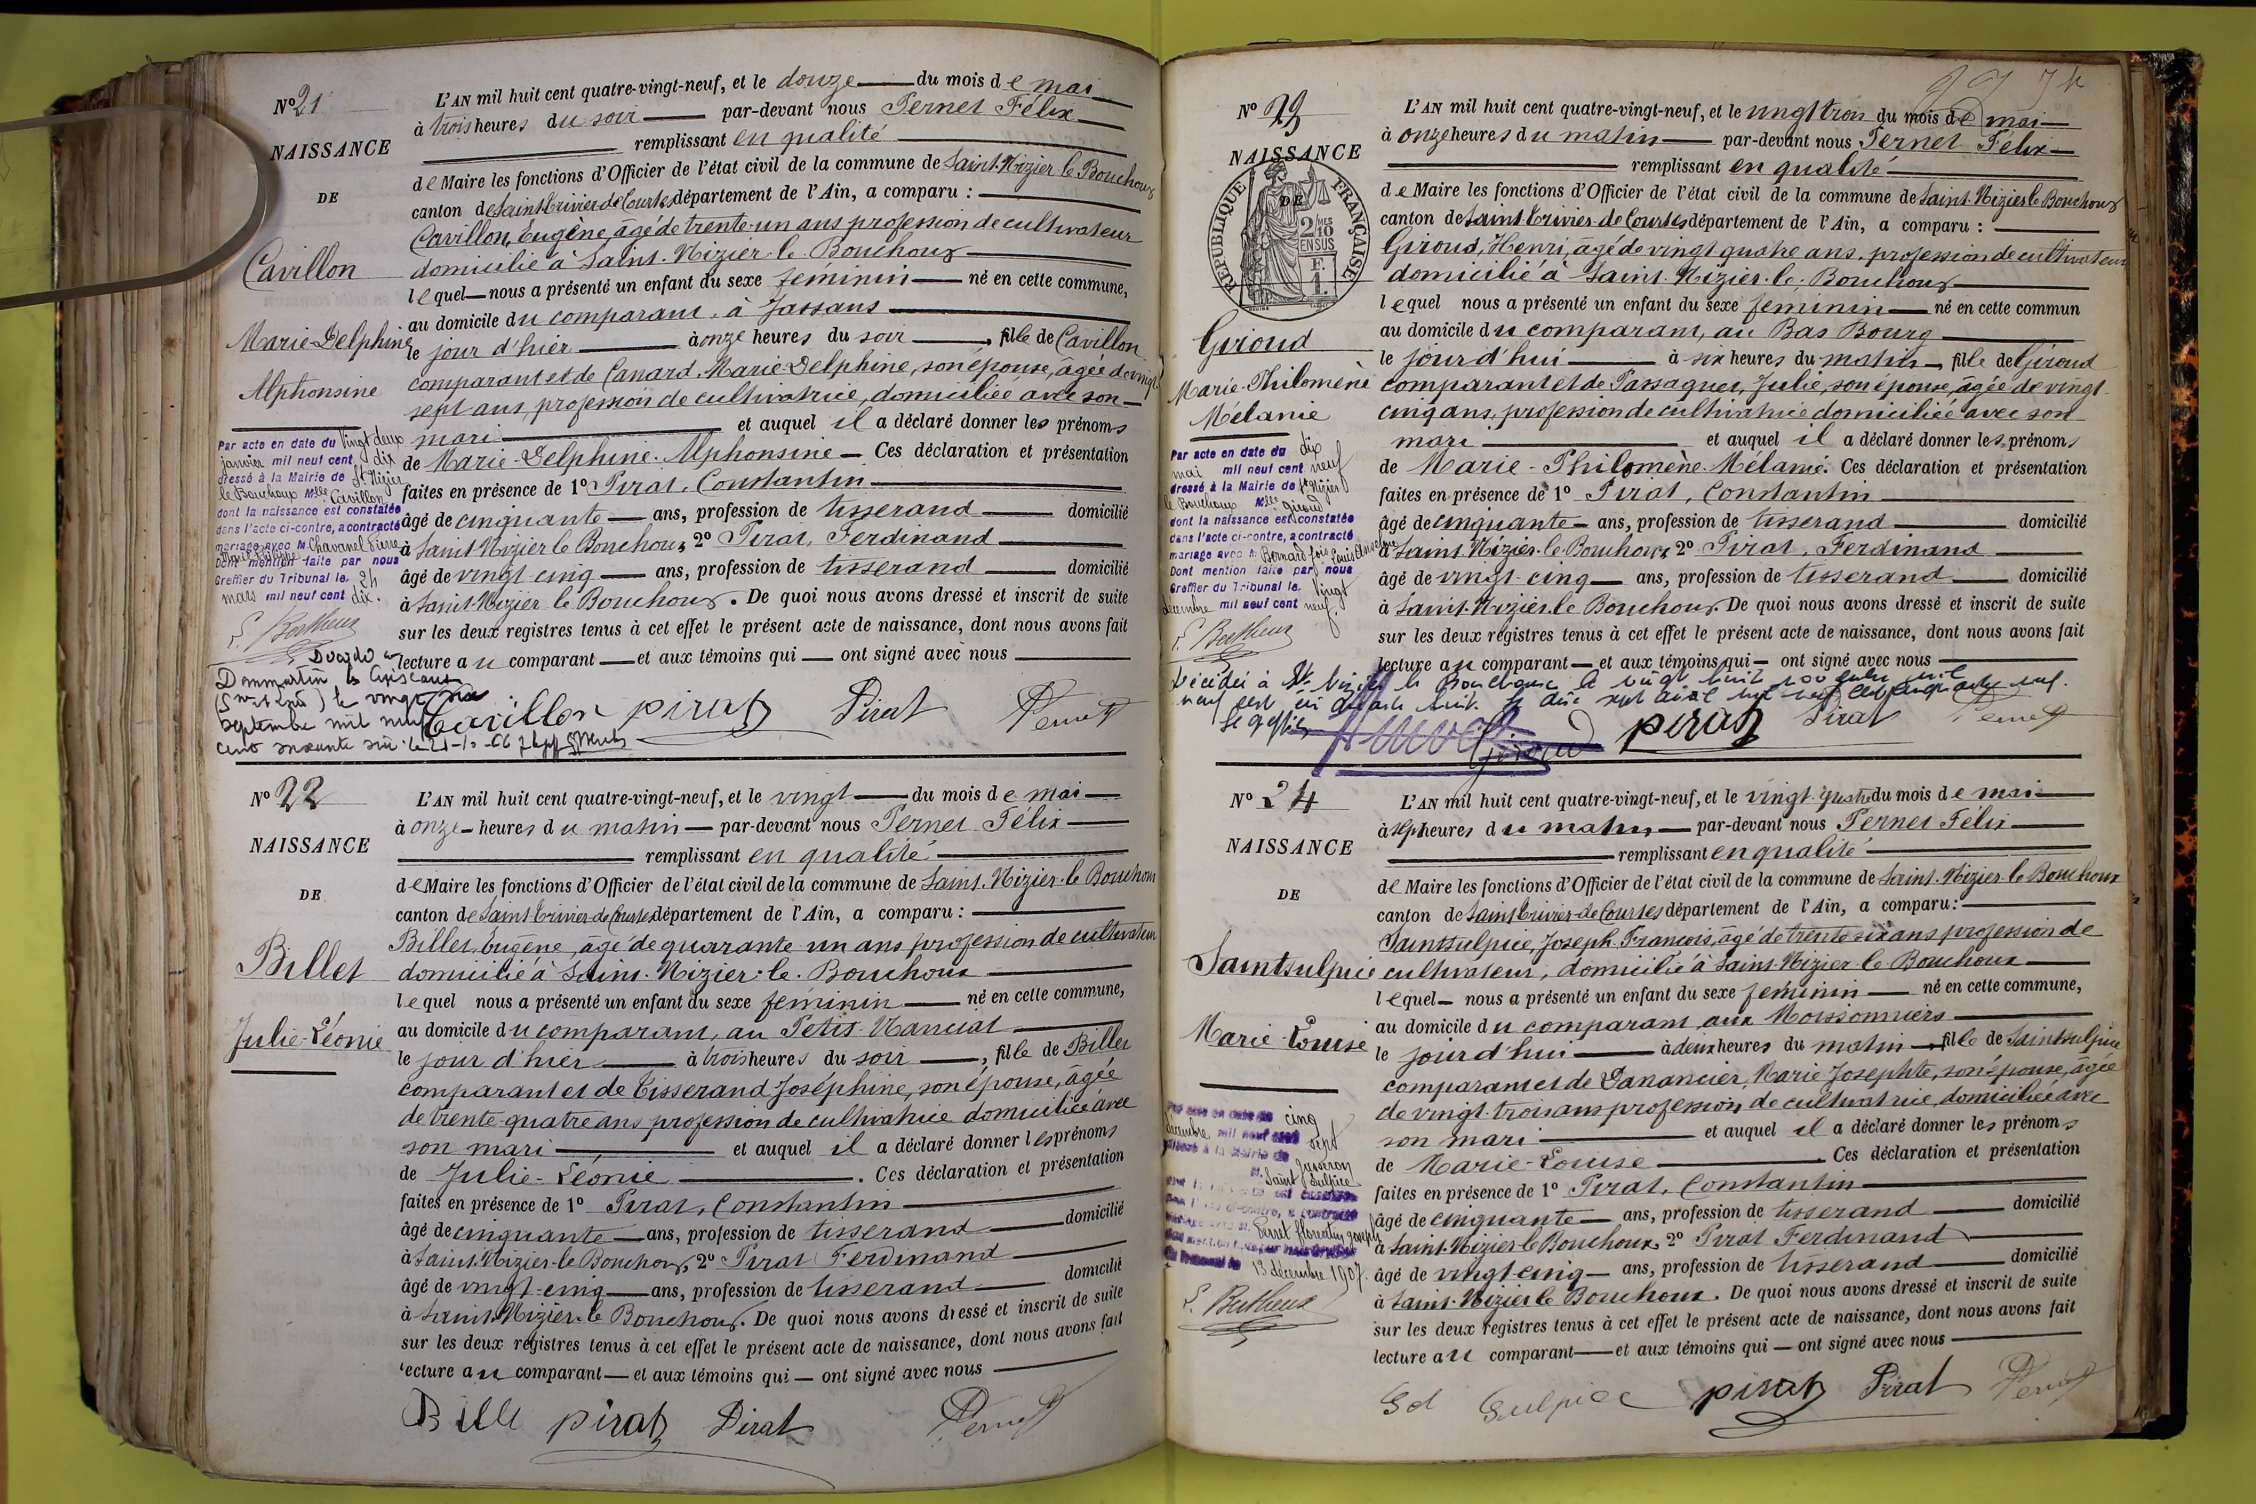 N° 21
NAISSANCE
DE
Cavillon
Marie-Delphine
Alphonsine
L'AN mil huit cent quatre-vingt-neuf, et le douze du mois de mai
à trois heures du soir par-devant nous Pernet Félix
remplissant en qualité
de Maire les fonctions d'Officier de l'état civil de la commune de Saint-Nizier-le-Bouchoux
canton de Saint-Trivier-de-Courtes département de l'Ain, a comparu :
Cavillon, Eugène, âgé de trente-un ans profession de cultivateur
domicilié à Saint-Nizier-le-Bouchoux
lequel nous a présenté un enfant du sexe feminin né en cette commune,
au domicile du comparant, à Jassans
le jour d'hier à onze heures du soir, fille de Cavillon
comparant et de Canard, Marie-Delphine, son épouse, âgée de vingt-
sept ans, profession de cultivatrice, domiciliée avec son
mari et auquel il a déclaré donner les prénoms
de Marie-Delphine-Alphonsine Ces déclaration et présentation
faites en présence de 1° Pirat, Constantin
âgé de cinquante ans, profession de tisserand domicilié
à Saint-Nizier-le-Bouchoux, 2° Pirat, Ferdinand
âgé de vingt-cinq ans, profession de tisserand domicilié
à Saint-Nizier-le-Bouchoux. De quoi nous avons dressé et inscrit de suite
sur les deux registres tenus à cet effet le présent acte de naissance, dont nous avons fait
lecture au comparant et aux témoins qui ont signé avec nous
Par acte en date du Vingt deux
janvier mil neuf cent dix
dressé à la Mairie de St Nizier
le Bouchoux Mlle Cavillon
dont la naissance est constatée
dans l'acte ci-contre, a contracté
mariage avec M. Chavanel Pierre
Dont mention faite par nous
Greffier du Tribunal le 24
mars mil neuf cent dix.
E. Bertheux
Décédée à
Dommartin les Cuiseaux
le vingt six
septembre mil neuf
cent soixante six
Cavillon pirat Pirat Pernet
N° 22
NAISSANCE
DE
Billet
Julie-Léonie
L'AN mil huit cent quatre-vingt-neuf, et le vingt du mois de mai
à onze heures du matin par-devant nous Pernet Félix
remplissant en qualité
de Maire les fonctions d'Officier de l'état civil de la commune de Saint-Nizier-le-Bouchoux
canton de Saint-Trivier-de-Courtes département de l'Ain, a comparu :
Billet, Eugène, âgé de quarante-un ans profession de cultivateur
domicilié à Saint-Nizier-le-Bouchoux
lequel nous a présenté un enfant du sexe feminin né en cette commune,
au domicile du comparant, au Petit-Nanciat
le jour d'hier à trois heures du soir, fille de Billet
comparant et de Tisserand Joséphine, son épouse, âgée
de trente-quatre ans profession de cultivatrice domiciliée avec
son mari et auquel il a déclaré donner les prénoms
de Julie-Léonie. Ces déclaration et présentation
faites en présence de 1° Pirat, Constantin
âgé de cinquante ans, profession de tisserand domicilié
à Saint-Nizier-le-Bouchoux, 2° Pirat Ferdinand
âgé de vingt-cinq ans, profession de tisserand domicilié
à Saint-Nizier-le Bouchoux. De quoi nous avons dressé et inscrit de suite
sur les deux registres tenus à cet effet le présent acte de naissance, dont nous avons fait
lecture au comparant et aux témoins qui ont signé avec nous
Bille pirat Pirat Pernet
N° 23
NAISSANCE
DE
RÉPUBLIQUE FRANÇAISE
2/10 MES
EN SUS
F.
1.
Giroud
Marie-Philomène
Mélanie
L'AN mil huit cent quatre-vingt-neuf, et le vingt trois du mois de mai
à onze heures du matin par-devant nous Pernet Félix
remplissant en qualité
de Maire les fonctions d'Officier de l'état civil de la commune de Saint-Nizier-le-Bouchoux
canton de Saint-Trivier-de-Courtes département de l'Ain, a comparu :
Giroud, Henri, âgé de vingt quatre ans, profession de cultivateur
domicilié à Saint-Nizier-le-Bouchoux
lequel nous a présenté un enfant du sexe feminin né en cette commun
au domicile du comparant, au Bas Bourg
le jour d'hui à six heures du matin, fille de Giroud
comparant et de Passaquet, Julie, son épouse, âgée de vingt-
cinq ans, profession de cultivatrice domiciliée avec son
mari et auquel il a déclaré donner les prénoms
de Marie-Philomène-Mélanie. Ces déclaration et présentation
faites en présence de 1° Pirat, Constantin
âgé de cinquante ans, profession de tisserand domicilié
à Saint-Nizier-le-Bouchoux 2° Pirat, Ferdinand
âgé de vingt-cinq ans, profession de tisserand domicilié
à Saint-Nizier-le-Bouchoux. De quoi nous avons dressé et inscrit de suite
sur les deux registres tenus à cet effet le présent acte de naissance, dont nous avons fait
lecture au comparant et aux témoins qui ont signé avec nous
Par acte en date du dix
mai mil neuf cent neuf
dressé à la Mairie de St Nizier
le Bouchoux Mlle Giroud
dont la naissance est constatée
dans l'acte ci-contre, a contracté
mariage avec M. Bernard
Dont mention faite par nous
Greffier du Tribunal le Vingt
décembre mil neuf cent neuf.
E. Bertheux
Décédée à St Nizier le Bouchoux le vingt huit mil
neuf cent
Le Greffier
Giroud pirat Pirat Pernet
N° 24
NAISSANCE
DE
Saintsulpice
Marie-Louise
L'AN mil huit cent quatre-vingt-neuf, et le vingt-quatre du mois de mai
à sept heures du matin par-devant nous Pernet Félix
remplissant en qualité
de Maire les fonctions d'Officier de l'état civil de la commune de Saint-Nizier-le-Bouchoux
canton de Saint-Trivier-de-Courtes département de l'Ain, a comparu :
Saintsulpice, Joseph-François, âgé de trente-six ans profession de
cultivateur, domicilié à Saint-Nizier-le-Bouchoux
lequel nous a présenté un enfant du sexe feminin né en cette commune,
au domicile du comparant aux Moissonniers
le jour d'hui à deux heures du matin, fille de Saintsulpice
comparant et de Danancier, Marie Josephte, son épouse, âgée
de vingt-trois ans profession de cultivatrice, domiciliée avec
son mari et auquel il a déclaré donner les prénoms
de Marie-Louise. Ces déclaration et présentation
faites en présence de 1° Pirat, Constantin
âgé de cinquante ans, profession de tisserand domicilié
à Saint-Nizier-le-Bouchoux, 2° Pirat Ferdinand
âgé de vingt-cinq ans, profession de tisserand domicilié
à Saint-Nizier-le Bouchoux. De quoi nous avons dressé et inscrit de suite
sur les deux registres tenus à cet effet le présent acte de naissance, dont nous avons fait
lecture au comparant et aux témoins qui ont signé avec nous
Par acte en date du cinq
décembre mil neuf cent sept
dressé à la Mairie de Jasseron
M. Saint Sulpice
Perret Florentin Joseph
13 décembre 1907.
E. Bertheux
Sd Sulpice pirat Pirat Pernet